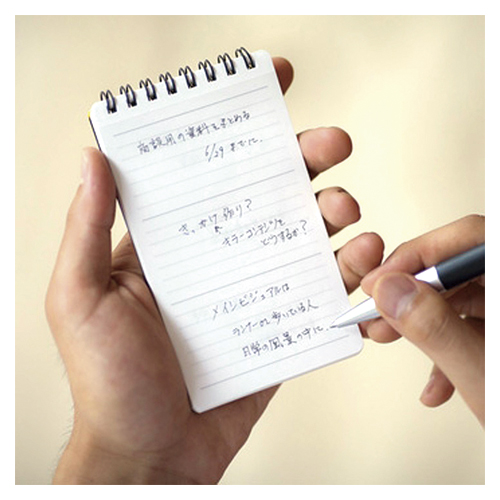 商談用の資料をまとめる
6/29までに.
きっかけ作り?
キラーコンテンツを
どうするか?
メインビジュアルは
ランナーが歩いている人
日常の風景の中に.